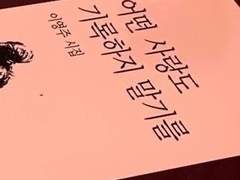 어떤 사랑도
기록하지 말기를
이영주 시집